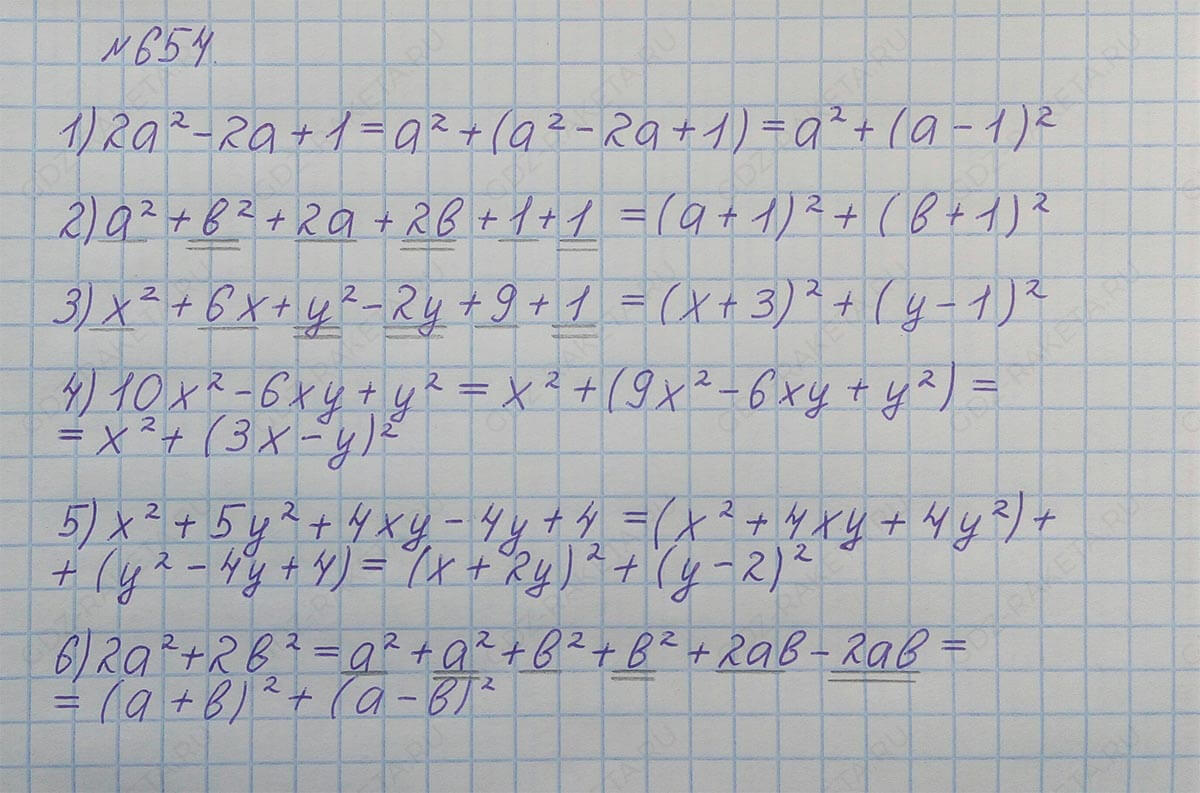 №654.
1) 2a² - 2a + 1 = a² + (a² - 2a + 1) = a² + (a - 1)²
2) a² + в² + 2a + 2в + 1 + 1 = (a + 1)² + (в + 1)²
3) x² + 6x + y² - 2y + 9 + 1 = (x + 3)² + (y - 1)²
4) 10x² - 6xy + y² = x² + (9x² - 6xy + y²) =
= x² + (3x - y)²
5) x² + 5y² + 4xy - 4y + 4 = (x² + 4xy + 4y²) +
+ (y² - 4y + 4) = (x + 2y)² + (y - 2)²
6) 2a² + 2в² = a² + a² + в² + в² + 2aв - 2aв =
= (a + в)² + (a - в)²
GDZ-RAKETA.RU